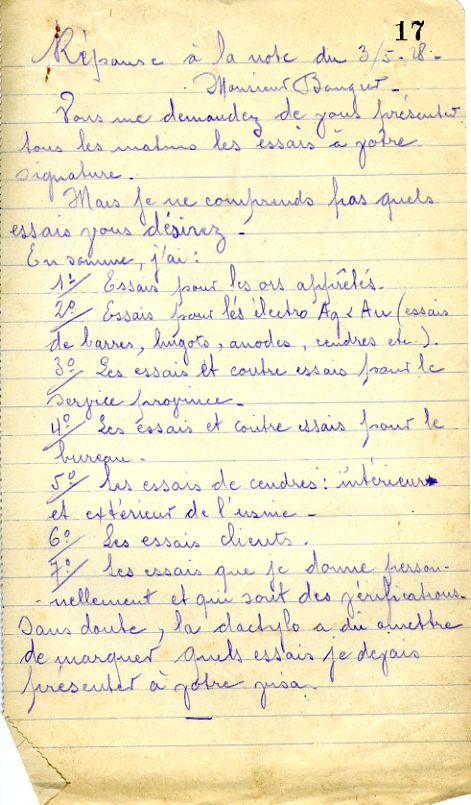 17
Réponse à la note du 3/5-28-
Monsieur Bouquet-
Vous me demandez de vous présenter
tous les matins les essais à votre
signature.
Mais je ne comprends pas quels
essais vous désirez-
En somme, j'ai:
1°/ Essais pour les ors apprêtés.
2°/ Essais pour les électro Ag & Au (essais
de barres, lingots, anodes, cendres etc.).
3°/ Les essais et contre essais pour le
service province-
4°/ Les essais et contre essais pour le
bureau-
5°/ Les essais de cendres: intérieur
et extérieur de l'usine-
6°/ Les essais clients.
7°/ Les essais que je donne person-
-nellement et qui sont des vérifications-
Sans doute, la dactylo a dû omettre
de marquer quels essais je devais
présenter à votre visa.